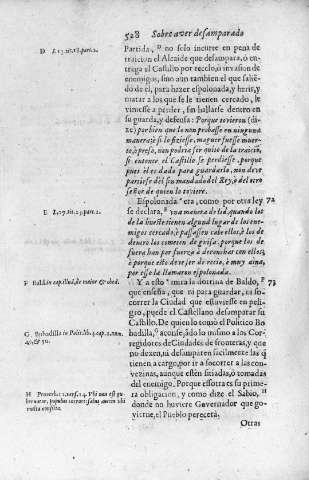 528 Sobre aver desamparado
D l.13.tit.18.part.2.
Partida, D no solo incurre en pena de
traicion el Alcaide que desampara, ò en-
trega el Castillo por recelo, ò invasion de
enemigos, sino aun tambien el que salie-
do de èl, para hazer espolonada, y herir, y
matar a los que se le tienen cercado, le
viniesse a perder, sin hallarse dentro en
su guarda, y defensa: Porque tuvieron (di-
ze) por bien que lo non probasse en ninguna
manera; è si lo fiziesse, maguer fuesse muer-
to, ò preso, non podria ser quito de la traiciõ,
si entonce el Castillo se perdiesse, porque
pues èl es dado para guardarlo, non deve
partirse dèl sin mandado del Rey, ò del otro
señor de quien lo toviere.
Espolonada era, como por otra ley 72
E l.27.tit.23.part.2.
se declara, E una manera de lid, quando los
de la hueste tienen algund lugar de los enemi-
gos cercado, è passassen cabe ellos, è los de
dentro los cometen de
fuera han por fuerza à deronchar con ellos,
è porque esto deve ser de recio, è muy aina,
por esso la llamaron espolonada.
F Bald.in cap.
Y a esto F mira la dotrina de Baldo, 73
que enseña, que ni para guardar, ni so-
correr la Ciudad que estuviesse en peli-
gro, puede el Castellano desamparar su
Castillo. De quien lo tomò el Politico Bo-
G Bobadilla in Polit.lib.4.cap.2.num.
49.& 50.
badilla, G aconsejando lo mismo a los Cor-
regidores de Ciudades de fronteras, y que
no dexen, ni desamparen facilmente las q̃
tienen a cargo, por ir a socorrer a las con-
vezinas, aunque estèn sitiadas, ò tomadas
del enemigo. Porque essotra es su prime-
H Proverb.11.vers.14. Ubi non est gu-
bernator, populus corruet: salus autem ubi
multa consilia.
ra obligacion, y como dize el Sabio, H
donde no huviere Governador que go-
vierne, el Pueblo perecerà.
Otras